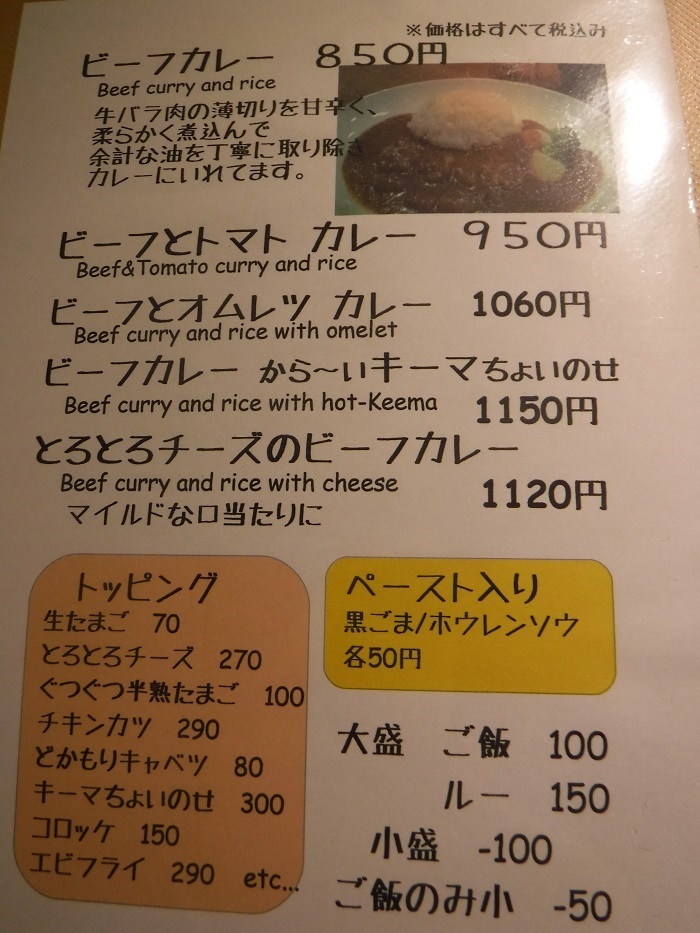 ※価格はすべて税込み
ビーフカレー 850円
Beef curry and rice
牛バラ肉の薄切りを甘辛く、
柔らかく煮込んで
余計な油を丁寧に取り除き
カレーにいれてます。
ビーフとトマト カレー 950円
Beef&Tomato curry and rice
ビーフとオムレツ カレー 1060円
Beef curry and rice with omelet
ビーフカレー から～いキーマちょいのせ
Beef curry and rice with hot-Keema 1150円
とろとろチーズのビーフカレー
Beef curry and rice with cheese 1120円
マイルドな口当たりに
トッピング
生たまご 70
とろとろチーズ 270
ぐつぐつ半熟たまご 100
チキンカツ 290
どかもりキャベツ 80
キーマちょいのせ 300
コロッケ 150
エビフライ 290 etc...
ペースト入り
黒ごま/ホウレンソウ
各50円
大盛 ご飯 100
ルー 150
小盛 -100
ご飯のみ小 -50